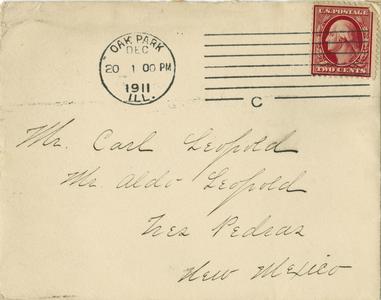 OAK PARK
DEC
20 1 00 PM
1911
ILL.
C
U.S. POSTAGE
TWO CENTS
Mr. Carl Leopold
Mr. Aldo Leopold
Tres Pedras
New Mexico